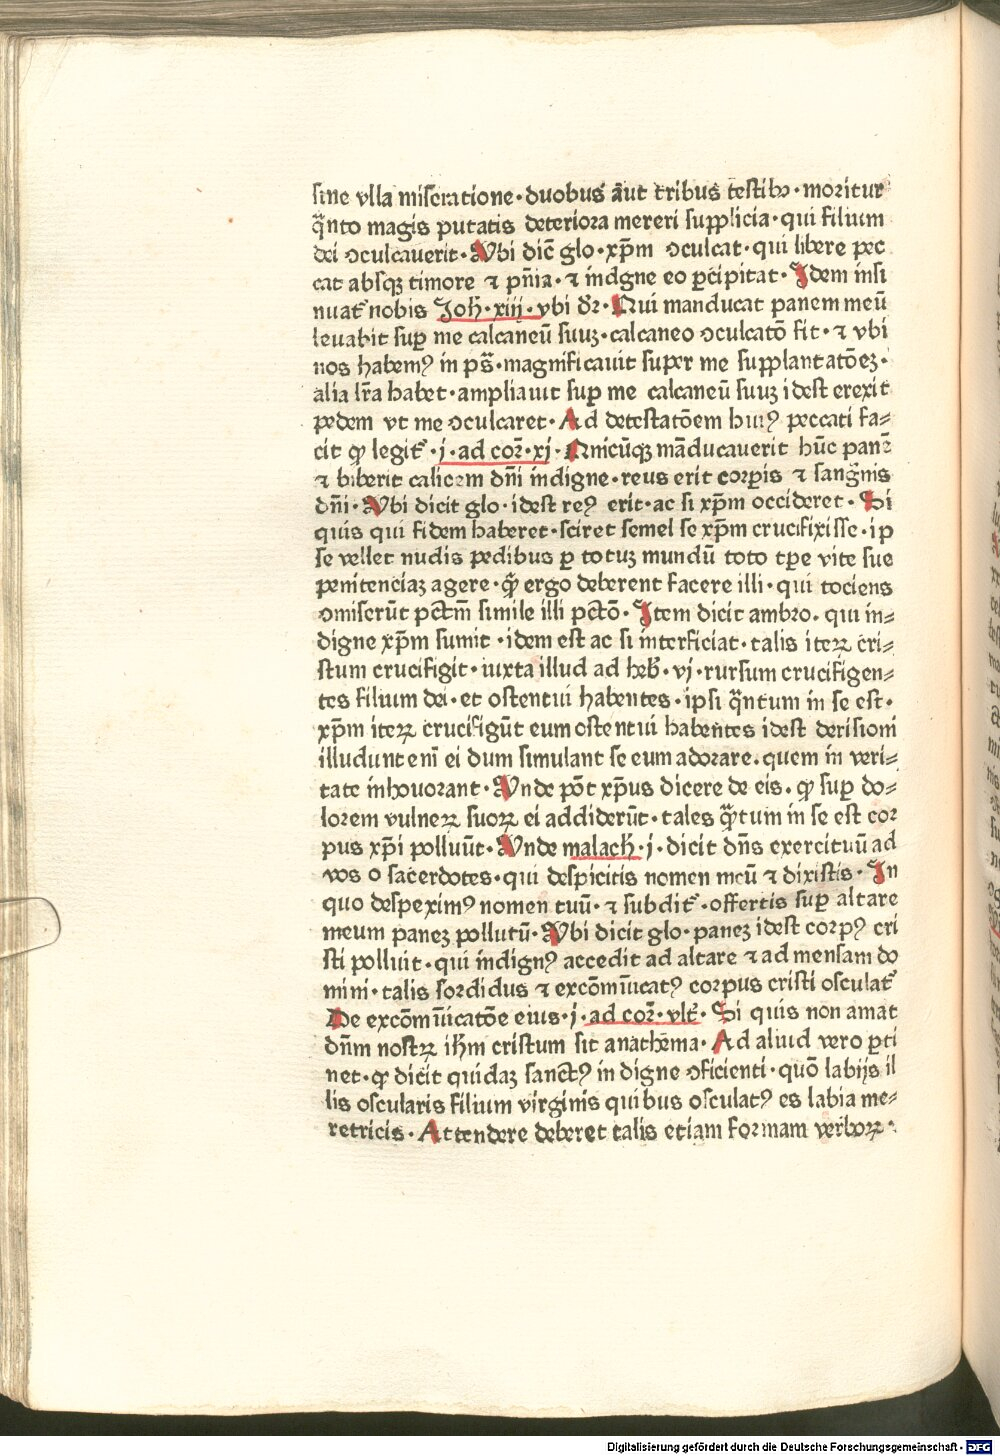 sine vlla miseratione·duobus aut tribus testibꝫ·moritur
q̄nto magis putatis deteriora mereri supplicia·qui filium
dei ꝯculcauerit·Vbi dic̄ glo·xp̄m ꝯculcat·qui libere pec
cat absqꝫ timore ⁊ pn̄ia·⁊ indigne eo p̄cipitat·Idem insi
nuat᷑ nobis Joh̄·xiij·vbi dr̄·Qui manducat panem meū
leuabit suꝑ me calcaneū suuꝫ·calcaneo ꝯculcatō fit·⁊ vbi
nos habemꝰ in ps̄·magnificauit super me supplantatōeꝫ·
alia lr̄a habet·ampliauit suꝑ me calcaneū suuꝫ idest erexit
pedem vt me ꝯculcaret·Ad detestatōem huiꝰ peccati fa⸗
cit ꝙ legit᷑·j·ad cor̄·xj·Quicūqꝫ māducauerit hūc panē
⁊ biberit calicem dn̄i indigne·reus erit corꝑis ⁊ sangīnis
dn̄i·Vbi dicit glo·idest reꝰ erit·ac si xp̄m occideret·Si
quis qui fidem haberet·sciret semel se xp̄m crucifixisse·ip
se vellet nudis pedibus ꝑ totuꝫ mundū toto tp̄e vite sue
penitenciaꝫ agere·q̄ ergo deberent facere illi·qui tociens
ꝯmiserūt pctm̄ simile illi pctō·Item dicit ambro·qui in⸗
digne xp̄m sumit·idem est ac si interficiat·talis iteꝝ cri⸗
stum crucifigit·iuxta illud ad heb̄·vj·rursum crucifigen⸗
tes filium dei·et ostentui habentes·ipsi q̄ntum in se est·
xp̄m iteꝝ crucifigūt eum ostentui habentes idest derisioni
illudunt enī ei dum simulant se eum adorare·quem in veri⸗
tate inhouorant·Vnde pōt xp̄us dicere de eis·ꝙ suꝑ do⸗
lorem vulneꝝ suoꝝ ei addiderūt·tales q̄tum in se est cor
pus xp̄i polluūt·Vnde malach̄·j·dicit dn̄s exercituū ad
vos o sacerdotes·qui despicitis nomen meū ⁊ dixistis·In
quo despeximꝰ nomen tuū·⁊ subdit᷑·offertis suꝑ altare
meum paneꝫ pollutū·Vbi dicit glo·paneꝫ idest corpꝰ cri
sti polluit·qui indignꝰ accedit ad altare ⁊ ad mensam do
mini·talis sordidus ⁊ excōmūicatꝰ corpus cristi osculat᷑
De excōmūicatōe eius·j·ad cor̄·vlt᷑·Si quis non amat
dn̄m nostꝝ ih̄m cristum sit anathema·Ad aliud vero ꝑti
net·ꝙ dicit quidaꝫ sanctꝰ indigne ꝯficienti·quō labijs il
lis oscularis filium virginis quibus osculatꝰ es labia me⸗
retricis·Attendere deberet talis etiam formam verboꝝ·
Digitalisierung gefördert durch die Deutsche Forschungsgemeinschaft - DFG